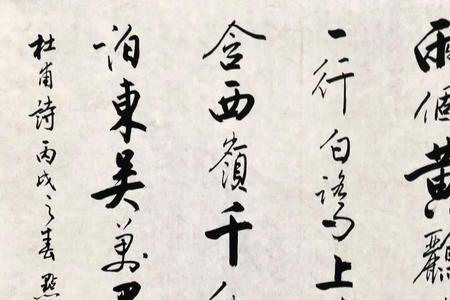 兩個黃鸝
一行白鷺上
含西嶺千
泊東吳萬里
杜甫詩丙戌之春點